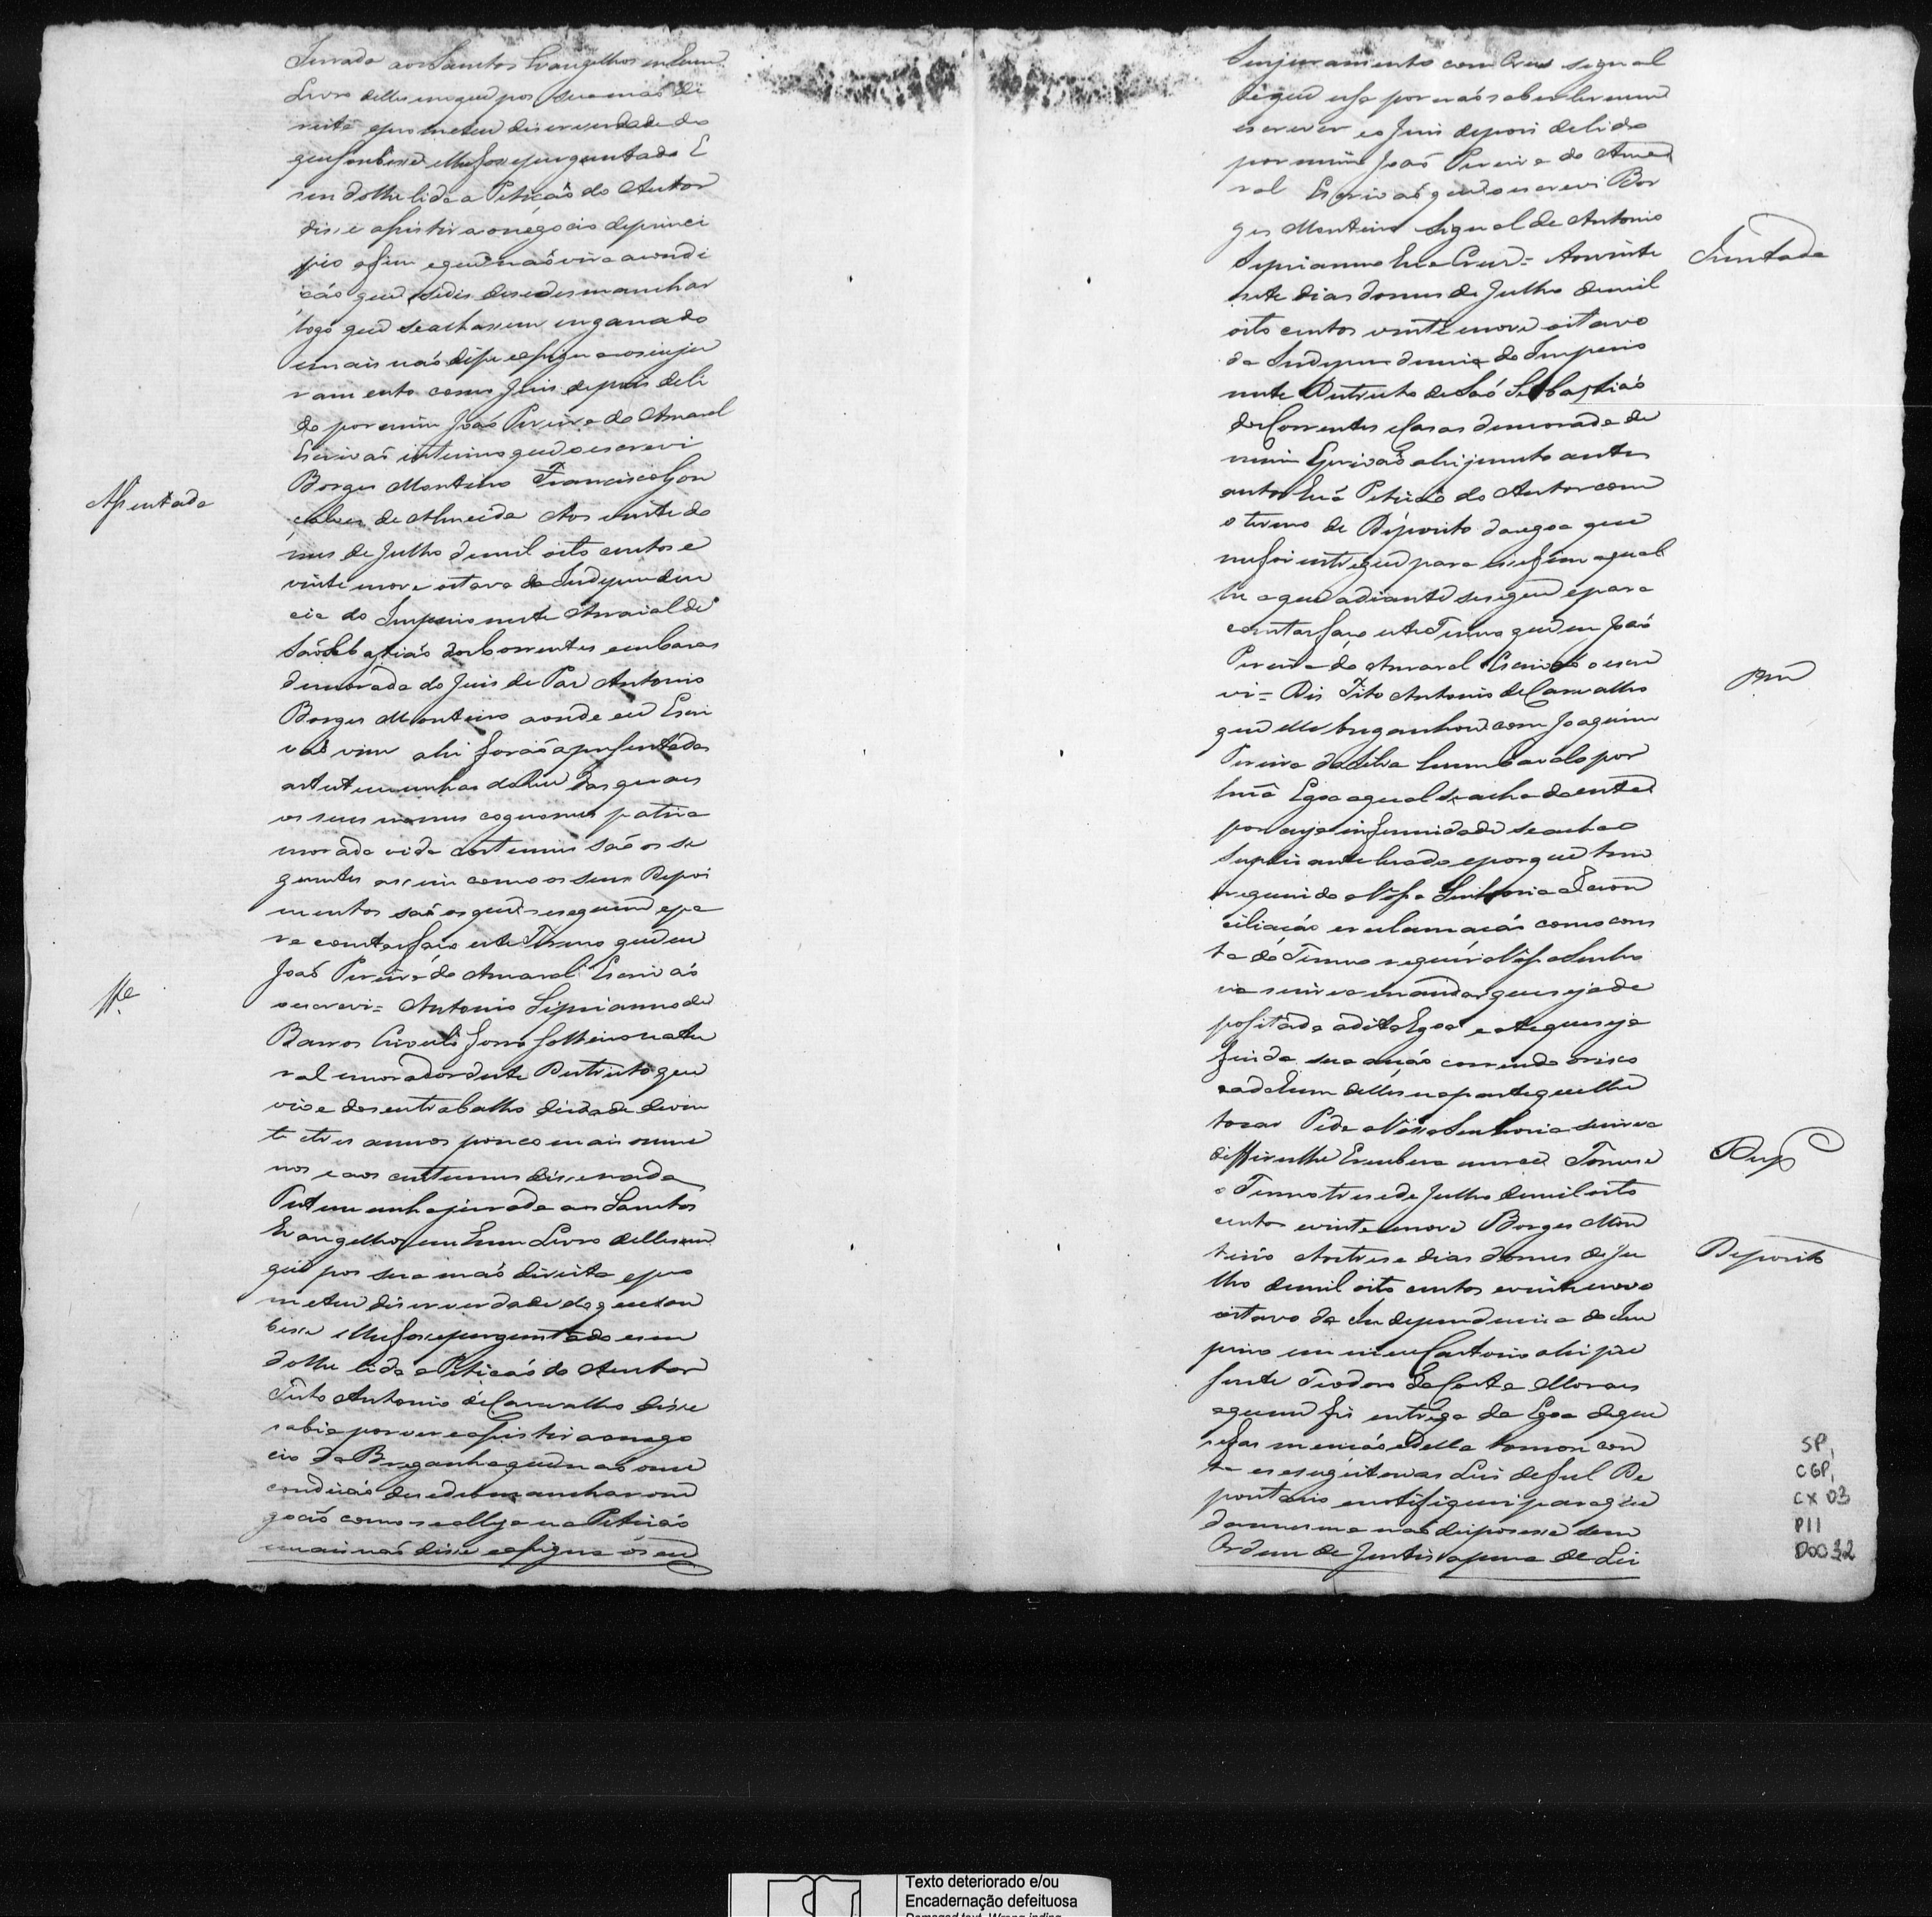 Jurada aos Santos Evangelhos em hum
Livro delles em que pos sua mão di
reita e prometeu diser verdade do
que soubese e lhe fose perguntado E
sendolhe lida a Petição do Autor
disse asistir ao negocio de princi
pio a fim e que não vira a condi
ção que se dis de se desmanchar
logo que se achasem enganado
e mais não dise e asigna o seu ju
ramento com o Juis depois de li
do por mim João Pereira do Amaral
Escrivão interino que o escrevi
Borges Monteiro Francisco Gon
calves de Almeida Aos vinte do
Asentada
mes de Julho de mil oito centos e
vinte nove oitavo da Independen
cia do Imperio neste Arraial de
São Sebastião dos Correntes em Casas
de morada do Juis de Pas Antonio
Borges Monteiro aonde eu Escri
vão vim ahi forão apresentadas
as testemunhas do Reu das quais
os seus nomes cognomes patria
morada vida costumes são os se
guintes asim como os seus Depoi
mentos são os que se seguem e pa
ra constar faço este Termo que eu
João Pereira do Amaral Escrivão
o escrevi = Antonio Siprianno de
Barros Crioulo forro solteiro natu
ral morador deste Destrito que
vive de seu trabalho de idade de vin
te tres annos pouco mais ou me
nos e aos custumes dise nada
Testemunha jurada aos Santos
Evangelhos em hum Livro delles em
que pos sua mão direita e pro
meteu diser verdade do que sou
bese e lhe fose perguntado e sen
dolhe lida a Petição do Autor
Tito Antonio de Carvalho dise
sabia por ver e asistir ao nego
cio da Breganha que não ouve
condição de se desmanchar o ne
gocio como se allega na Petição
e mais não disse e asigna o seu
Juramento com Crus signal
de que usa por não saber ler nem
escrever e o Juis depois de lido
por mim João Pereira do Ama
ral Escrivão que o escrevi Bor
ges Monteiro Signal de Antonio
Siprianno hua Crus = Aos vinte
Juntada
sete dias do mes de Julho de mil
oito centos vinte nove oitavo
da Independencia do Imperio
neste Destrito de São Sebastião
dos Correntes e Casas de morada de
mim Escrivão ahi junto a estes
autos huã Petição do Autor com
o termo de Deposito da egoa que
me foi entregue para esse fim a qual
he a que adiante se segue e para
constar faço este Termo que eu João
Pereira do Amaral Escrivão o escre
vi = Dis Tito Antonio de Carvalho
que elle breganhou com Joaquim
Pereira da Silva hum Cavalo por
huã Egoa a qual se acha doente
por cuja infermidade se acha o
Suplicante lesado e porque tem
requerido a Vosa Senhoria a Recon
ciliação e reclamação como cons
ta do Termo requer a Vosa Senho
ria seirva mandar que seja de
positada a dita Egoa e ate que seja
finda sua ação correndo o risco
cada hum delles na parte que lhe
tocar Pede a Vossa Senhoria seirva
diffirirlhe E recebera merce Tomese
o Termo trese de Julho de mil oito
centos e vinte nove Borges Mon
teiro Aos trese dias do mes de Ju
Deposito
lho de mil oito centos e vinte nove
oitavo da Independencia do Im
perio em meu Cartorio ahi pre
sente Teodoro da Costa Moraes
a quem fis entrega da Egoa de que
se fas menção e della tomou con
ta e se sugeitou as Leis de fiel De
positario e notifiquei para que
da mesma não disposese sem
Ordem de Justiça pena de Lei
SP,
CGP,
CX 03
P11
DOC 32
Texto deteriorado e/ou
Encadernação defeituosa